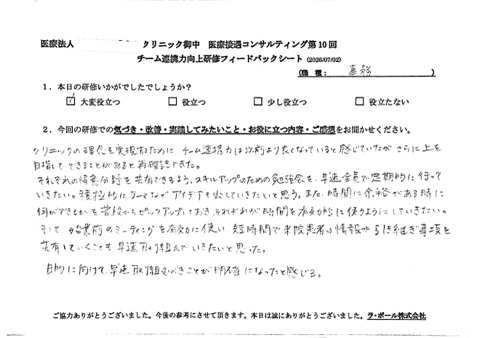 医療法人 クリニック御中 医療接遇コンサルティング第10回
チーム連携力向上研修フィードバックシート (2026/07/02)
(職種: 事務 )
1. 本日の研修いかがでしたでしょうか?
☑ 大変役立つ □ 役立つ □ 少し役立つ □ 役立たない
2. 今回の研修での気づき・改善・実践してみたいこと・お役に立つ内容・ご感想をお聞かせください。
クリニックの理念を実現するために チーム連携力は以前より良くなっていると感じていたが さらに上を
目指して できることがあると再確認できた。
それぞれの得意分野を共有できるよう、スキルアップのための勉強会を、早速全員で定期的に行って
いきたい。積極的に アイデアも出していきたいと思う。また、時間に余裕がある時に
何ができるかを普段からピックアップしておき、それぞれが時間を有効的に使うようにしていきたい。
そして 始業前のミーティングを有効に使い 短時間で来院患者の情報や引き継ぎ事項を
共有していくことも早速取り組んでいきたいと思った。
目的に向けて、早速取り組むべきことが明確になったと感じる。
ご協力ありがとうございました。今後の参考にさせて頂きます。本日は誠にありがとうございました。ラ・ポール株式会社